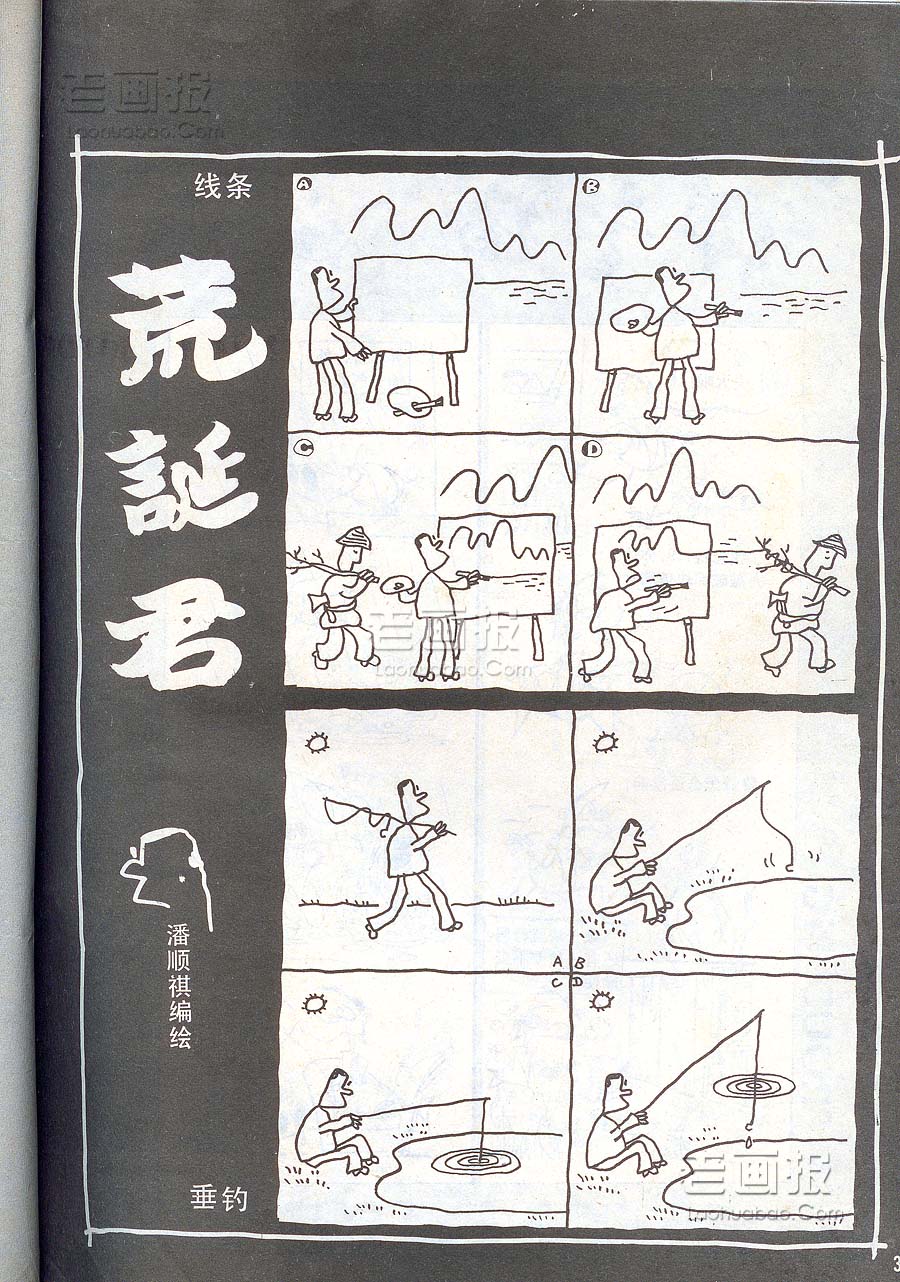 老画报
Laohuabao.Com
线条
荒誕君
潘顺祺编绘
垂钓
A
B
C
D
老画报
Laohuabao.Com
A
B
C
D
老画报
Laohuabao.Com
3